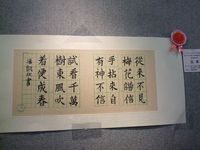 從來不見
梅花譜信
手拈來自
有神不信
試看千萬
樹東風吹
着便成春